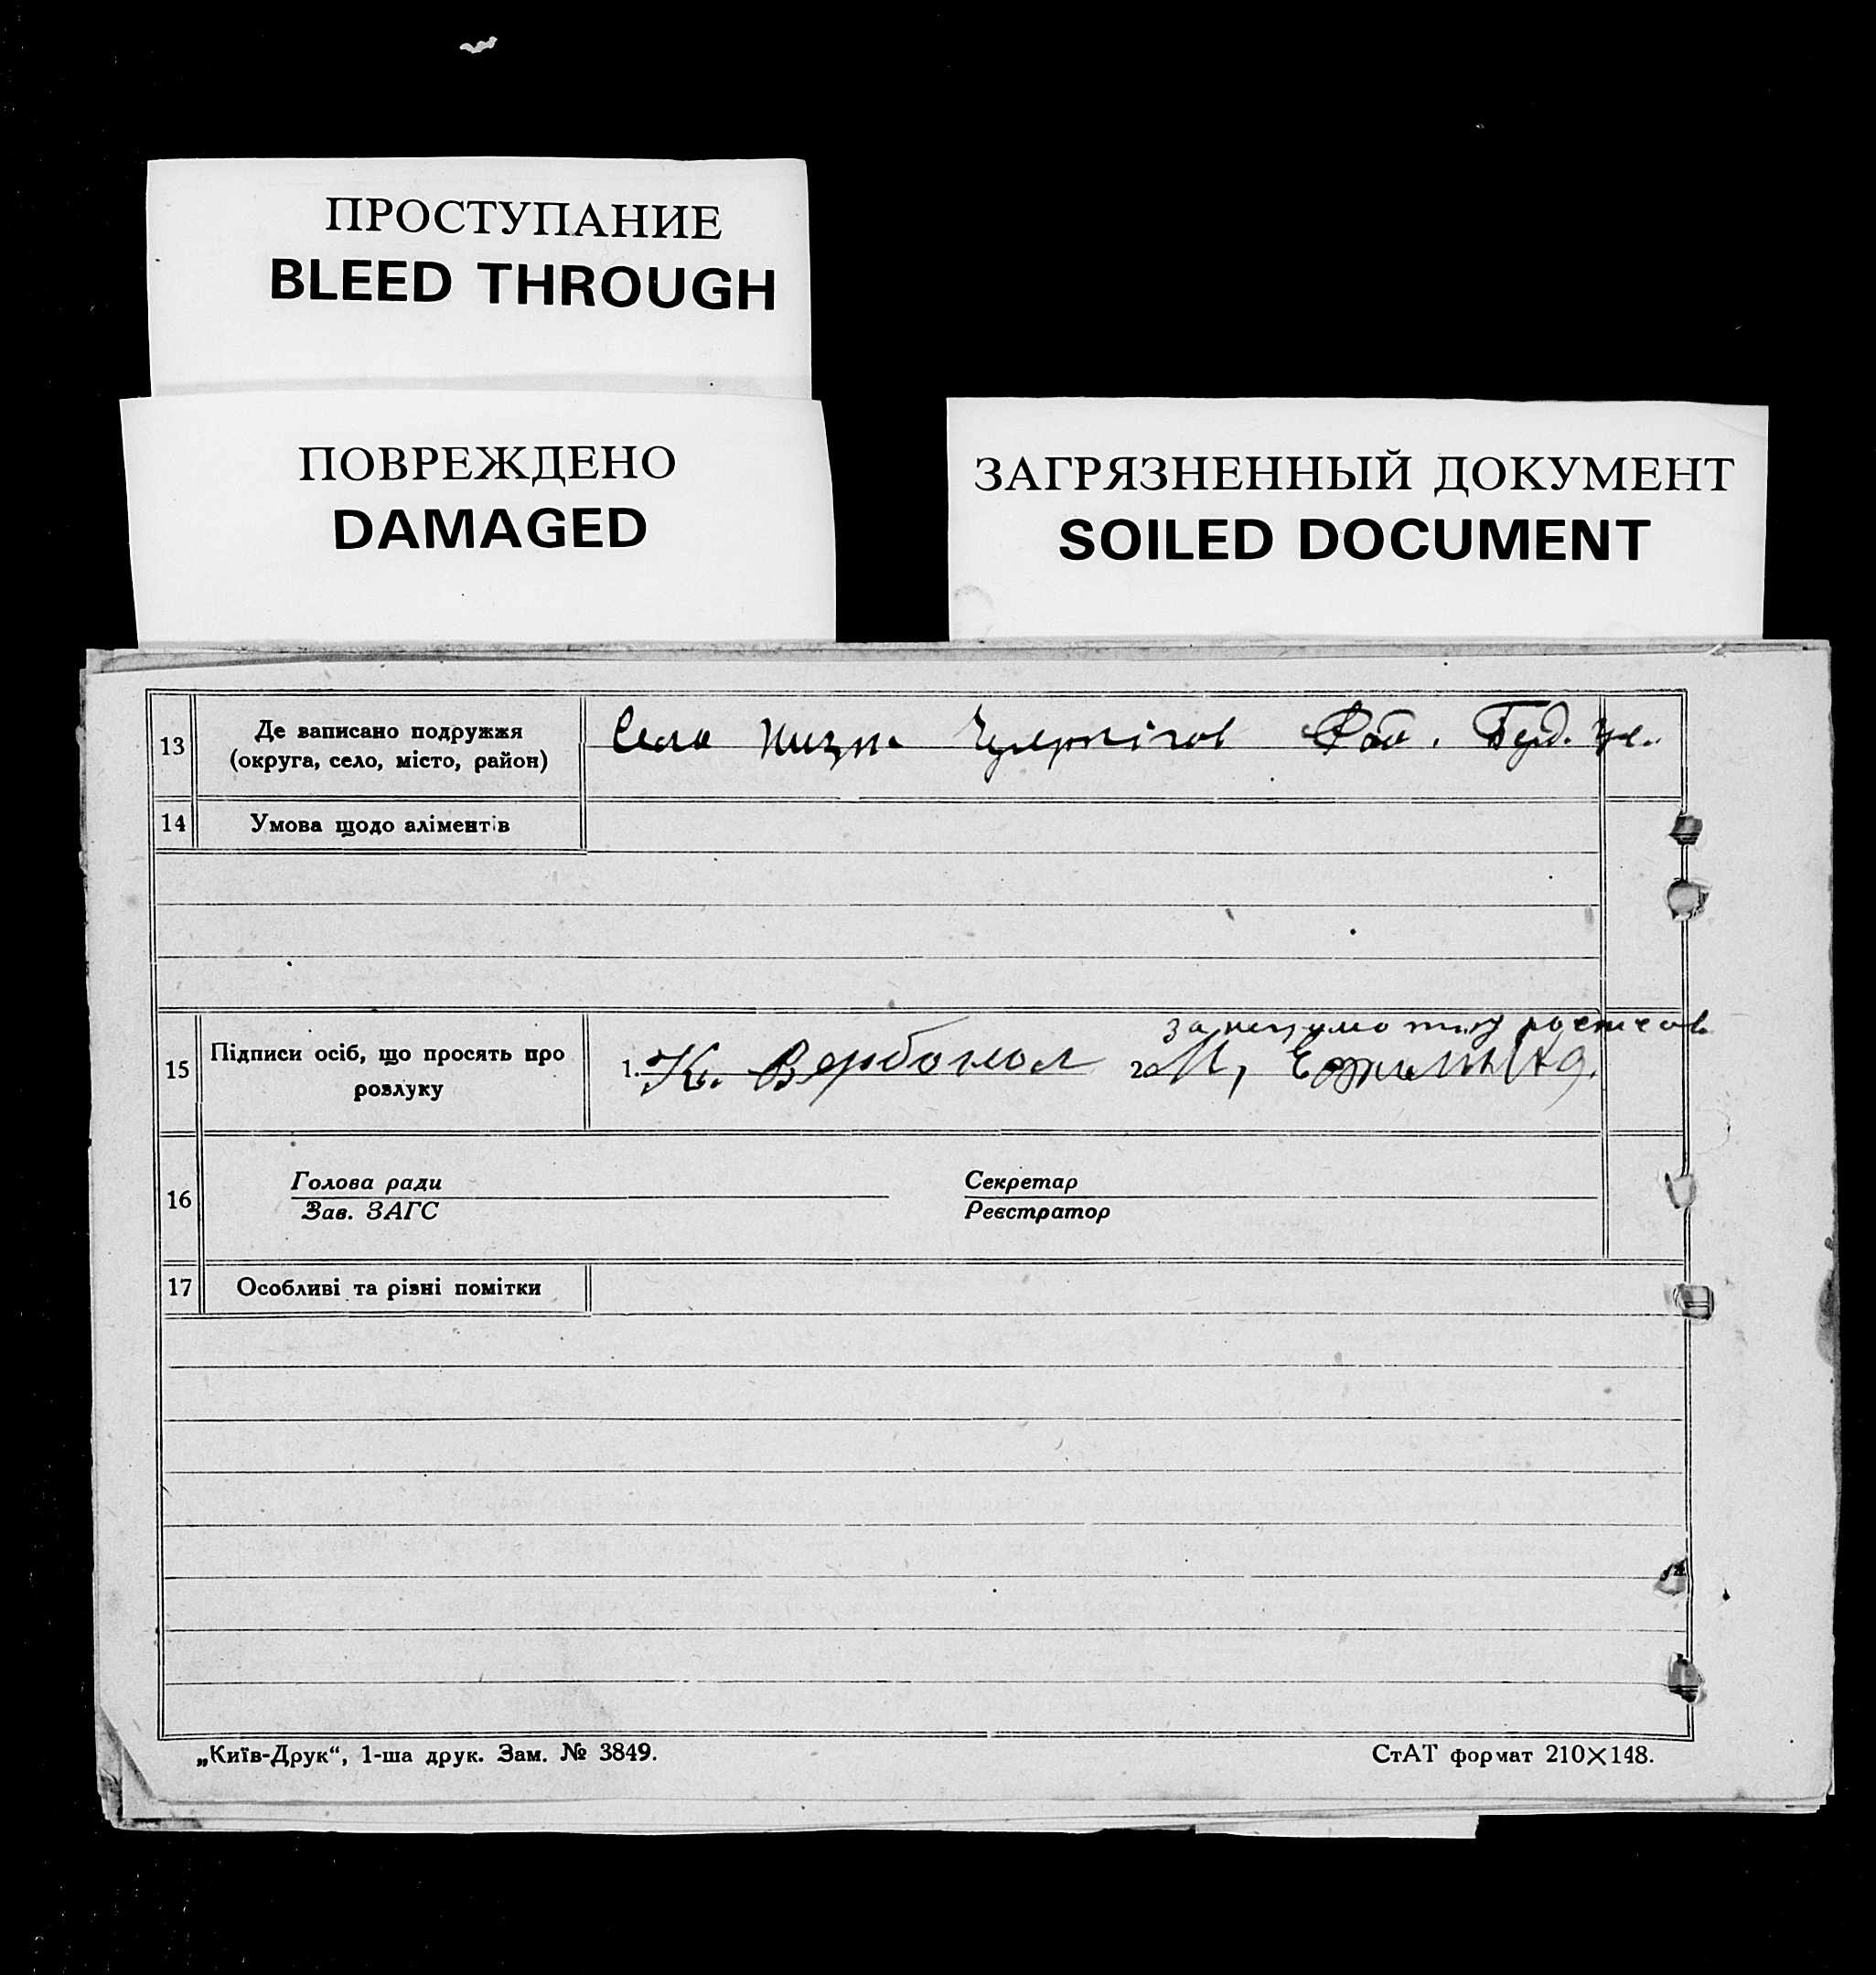 ПРОСТУПАНИЕ
BLEED THROUGH
ПОВРЕЖДЕНО
DAMAGED
ЗАГРЯЗНЕННЫЙ ДОКУМЕНТ
SOILED DOCUMENT
13 Де записано подружжя
(округа, село, місто, район)
Село
14 Умова щодо аліментів
15 Підписи осіб, що просять про
розлуку
1. К. Вербомол 2.
16 Голова ради
Зав. ЗАГС
Секретар
Реєстратор
17 Особливі та різні помітки
„Київ-Друк“, 1-ша друк. Зам. № 3849.
СтАТ формат 210×148.